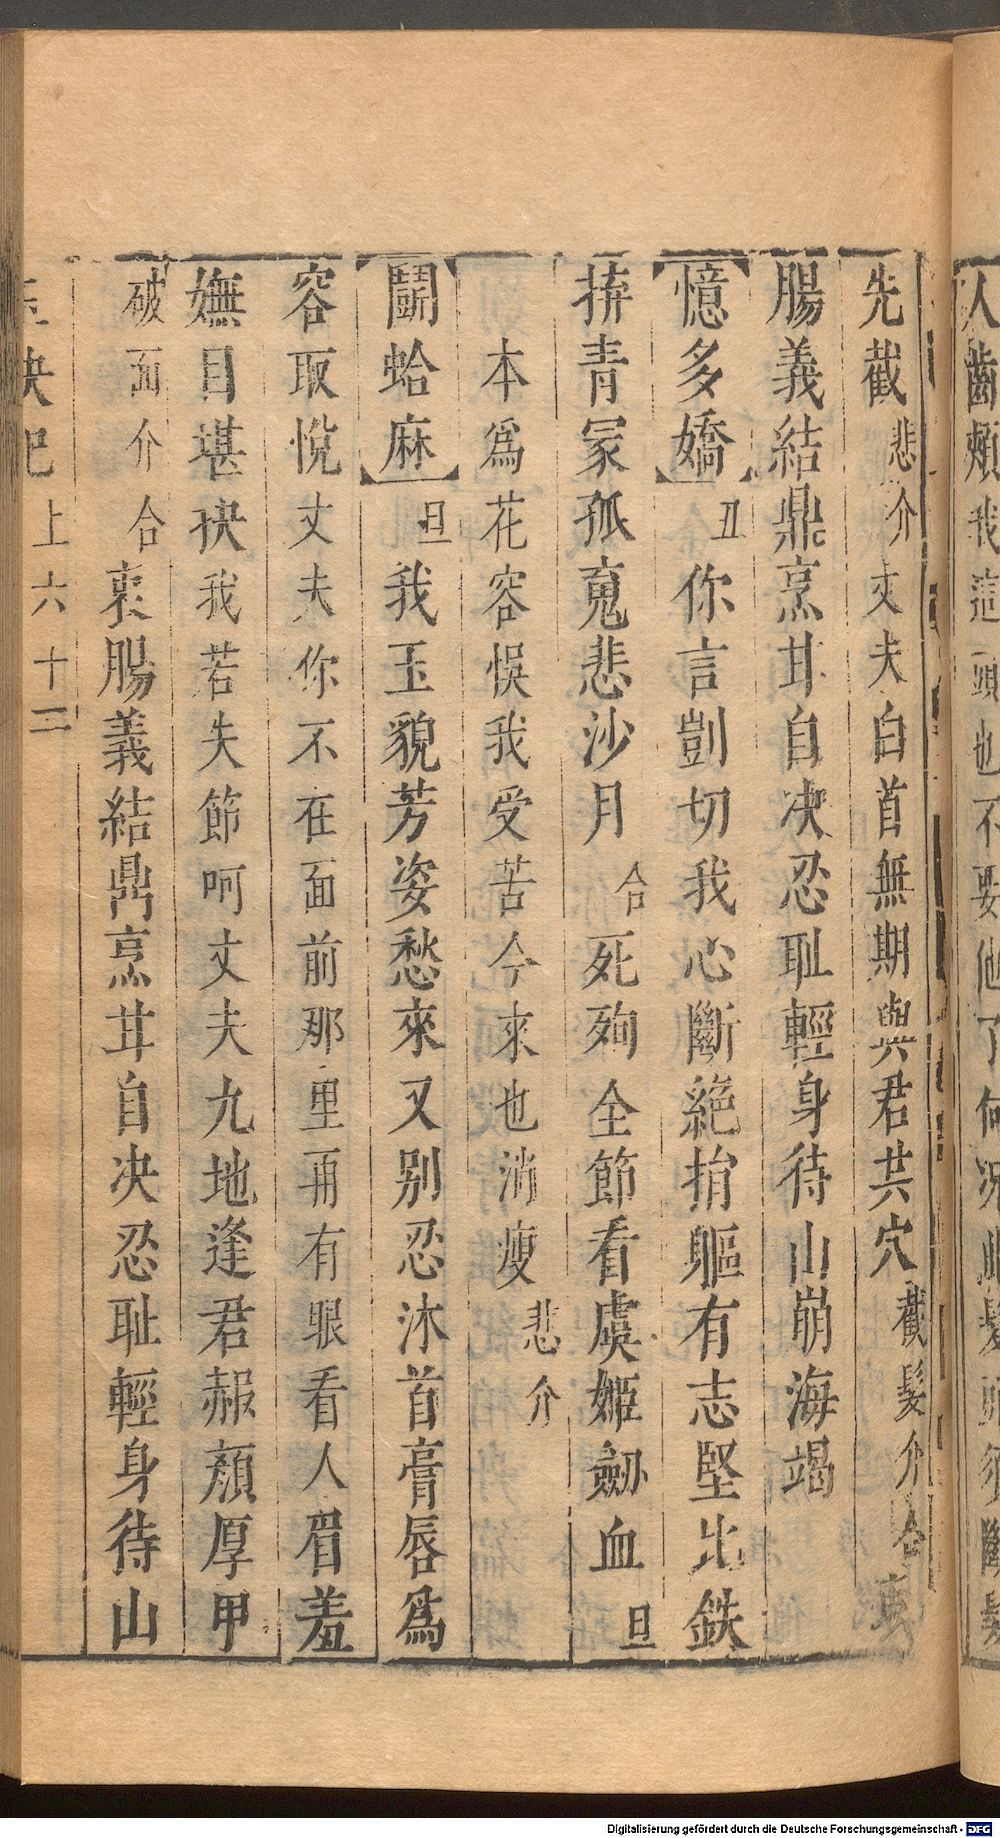 人齒頰我這頭也不要他了何况此髮須斷髮
先截悲介丈夫白首無期與君共穴截髮介合衷
腸義結鼎烹甘自决忍耻輕身待山崩海竭
憶多嬌丑你言剴切我心斷絶捐軀有志堅比鉄
拚青冡孤䰟悲沙月合死殉全節看虞姬劒血旦
本爲花容悞我受苦今來也消瘦悲介
鬬蛤麻旦我玉貌芳姿愁來又别忍沐首膏唇爲
容取悅丈夫你不在面前那里再有眼看人眉羞
嫵目堪抉我若失節呵丈夫九地逢君赧顔厚甲
破面介合衷腸義結鼎烹甘自决忍耻輕身待山
玉玦記上六十二
Digitalisierung gefördert durch die Deutsche Forschungsgemeinschaft - DFG